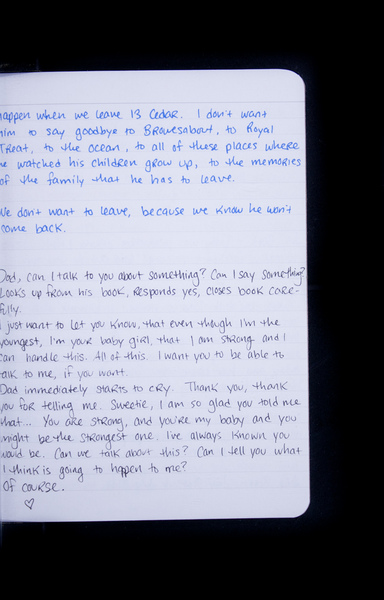 happen when we leave 13 Cedar. I don't want
him to say goodbye to Browesabout, to Royal
Treat, to the ocean, to all of these places where
he watched his children grow up, to the memories
of the family that he has to leave.
We don't want to leave, because we know he won't
come back.
Dad, can I talk to you about something? Can I say something?
Looks up from his book, responds yes, closes book care-
fully.
I just want to let you know, that even though I'm the
youngest, I'm your baby girl, that I am strong and I
can handle this. All of this. I want you to be able to
talk to me, if you want.
Dad immediately starts to cry. Thank you, thank
you for telling me. Sweetie, I am so glad you told me
that... You are strong, and you're my baby and you
might be the strongest one. I've always known you
would be. Can we talk about this? Can I tell you what
I think is going to happen to me?
Of course.
♡